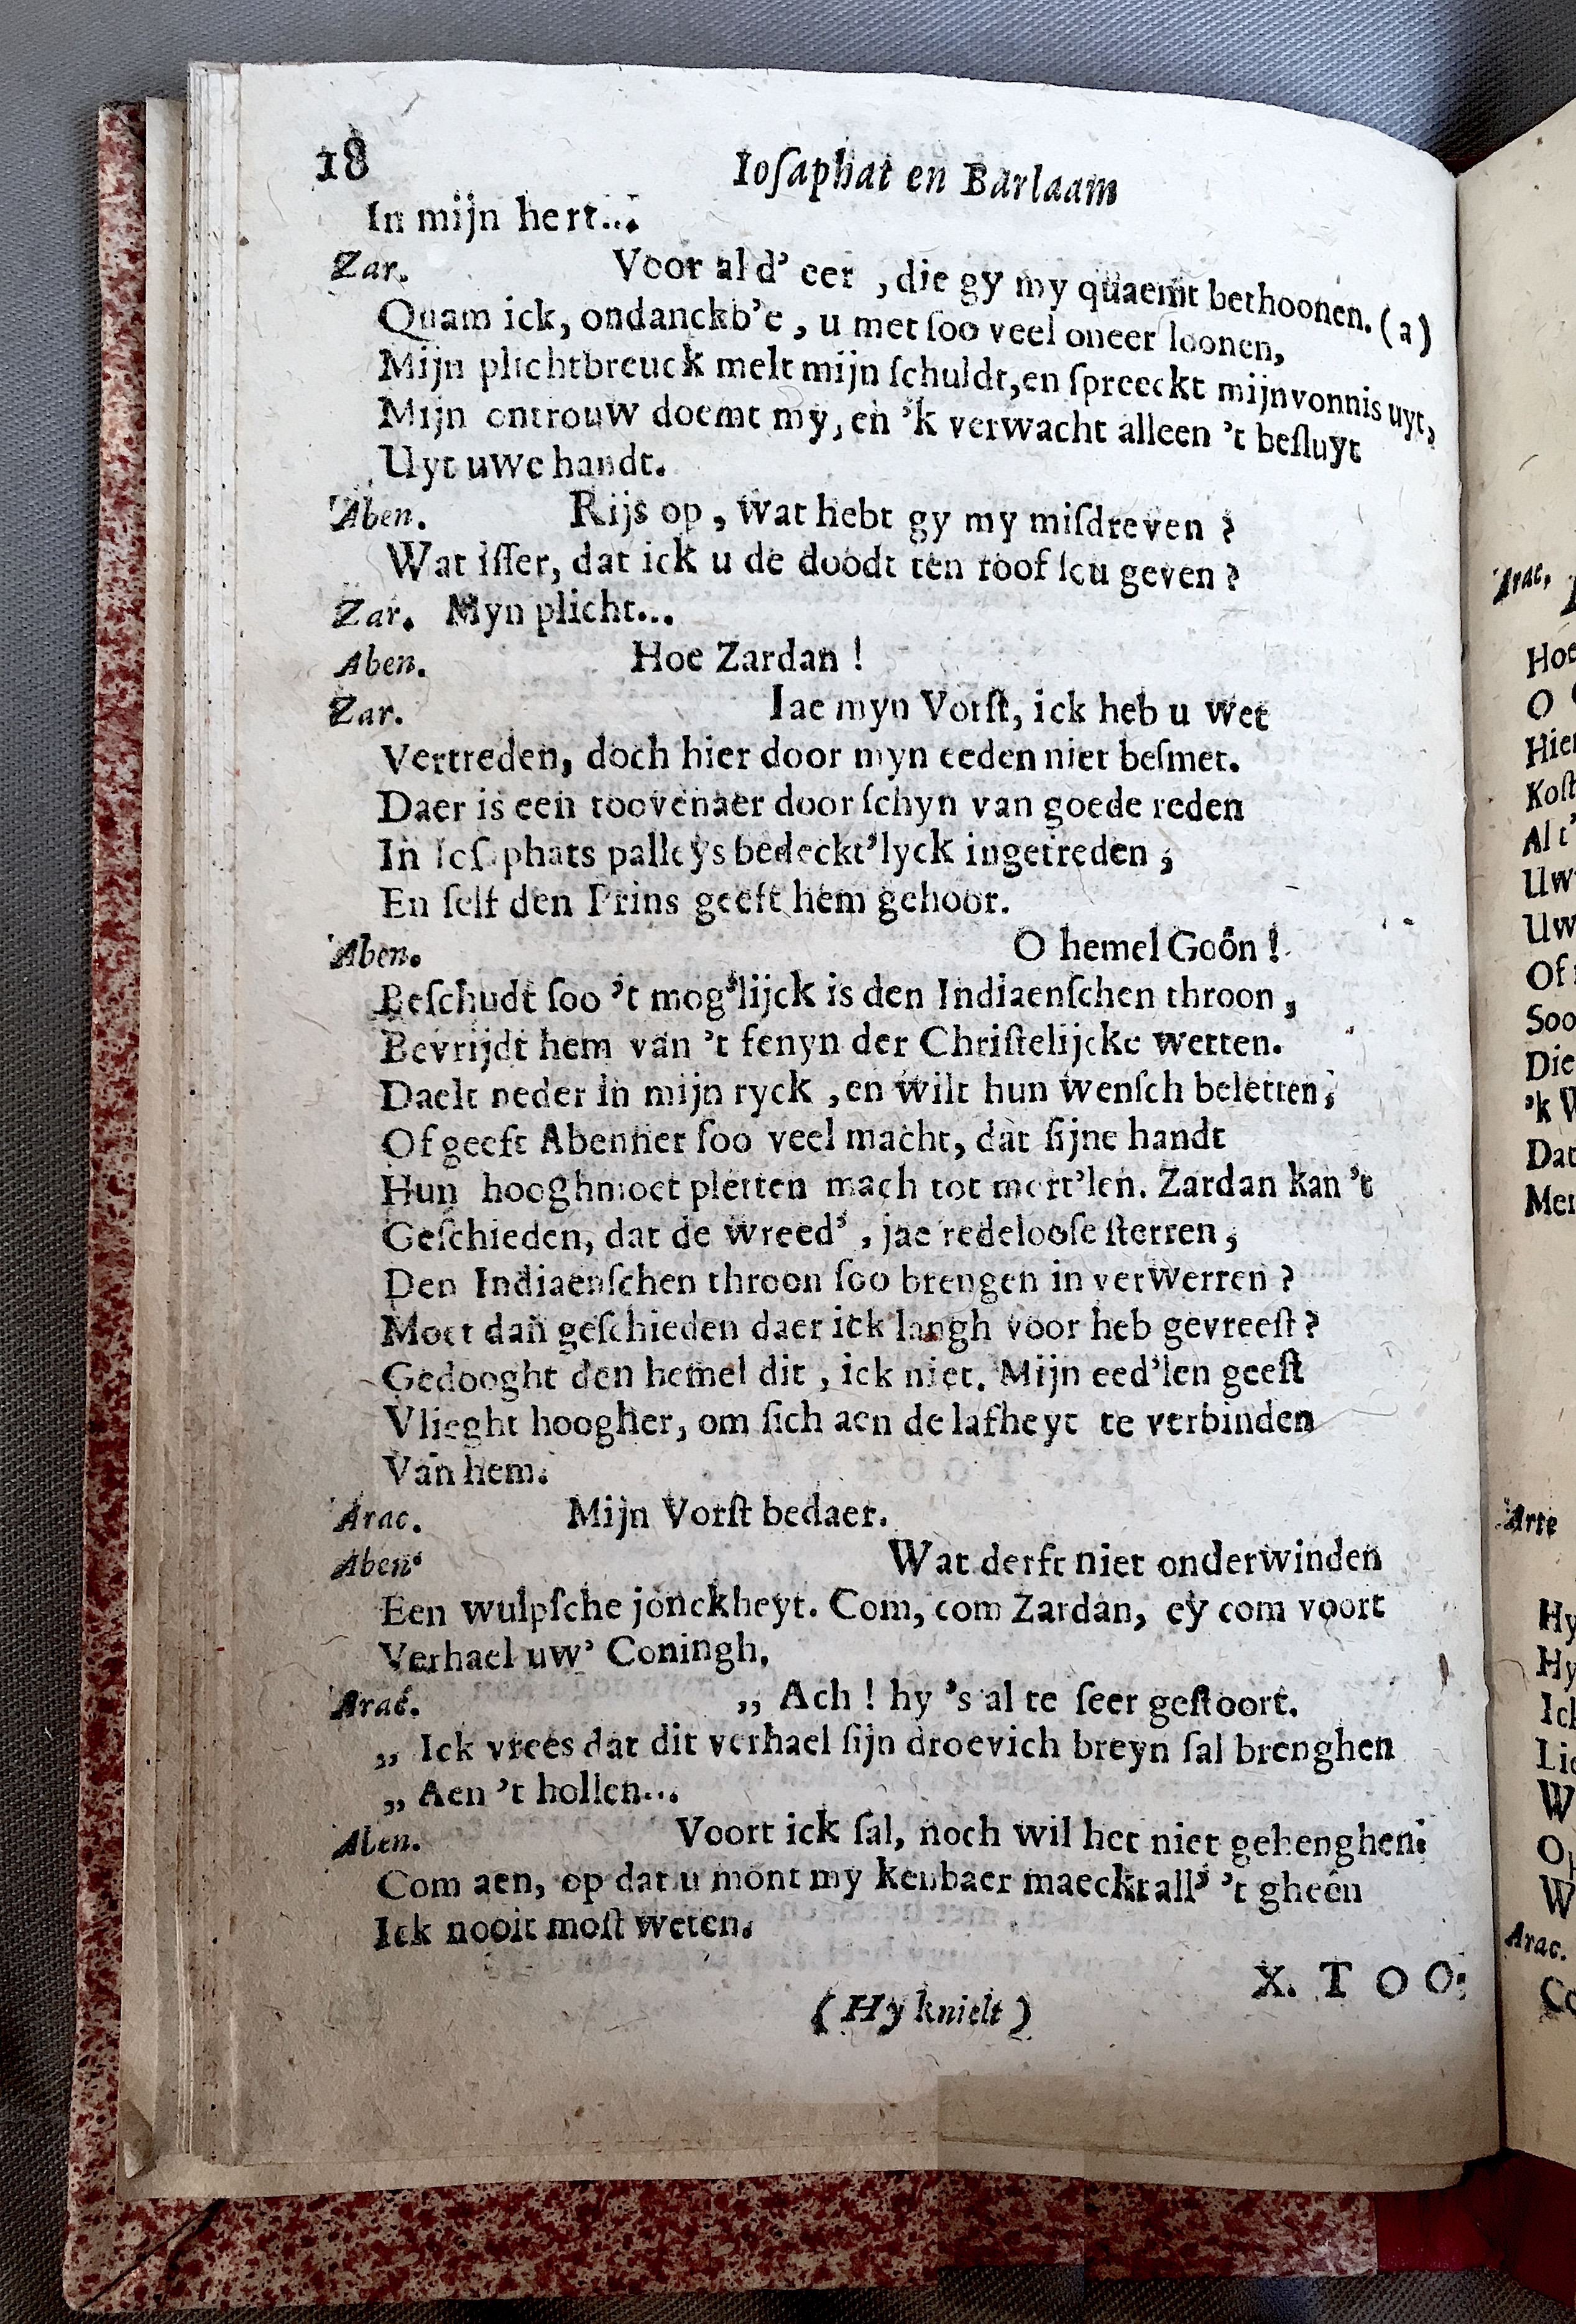 18 Ioſaphat en Barlaam
In mijn hert...
Zar. Voor al d' eer , die gy my quaemt bethoonen. (a)
Quam ick, ondanckb're , u met ſoo veel oneer loonen,
Mijn plichtbreuck melt mijn ſchuldt, en ſpreeckt mijn vonnis uyt,
Mijn ontrouw doemt my, en 'k verwacht alleen 't beſluyt
Uyt uwe handt.
Aben. Rijs op , wat hebt gy my miſdreven ?
Wat iſſer, dat ick u de doodt ten roof ſou geven ?
Zar. Myn plicht...
Aben. Hoe Zardan !
Zar. Iae myn Vorſt, ick heb u wet
Vertreden, doch hier door myn eeden niet beſmet.
Daer is een toovenaer door ſchyn van goede reden
In Ioſaphats palleys bedeckt'lyck ingetreden ;
En ſelf den Prins geeft hem gehoor.
Aben. O hemel Goôn !
Beſchudt ſoo 't mog'lijck is den Indiaenſchen throon ,
Bevrijdt hem van 't fenyn der Chriſtelijcke wetten.
Daelt neder in mijn ryck , en wilt hun wenſch beletten ;
Of geeft Abenner ſoo veel macht, dat ſijne handt
Hun hooghmoet pletten mach tot mort'len. Zardan kan 't
Geſchieden, dat de wreed' , jae redelooſe ſterren ;
Den Indiaenſchen throon ſoo brengen in verwerren ?
Moet dan geſchieden daer ick langh voor heb gevreeſt ?
Gedooght den hemel dit , ick niet. Mijn eed'len geeſt
Vlieght hoogher, om ſich aen de lafheyt te verbinden
Van hem.
Arac. Mijn Vorſt bedaer.
Aben. Wat derft niet onderwinden
Een wulpſche jonckheyt. Com, com Zardan, ey com voort
Verhael uw' Coningh.
Arac. ,, Ach ! hy 's al te ſeer geſtoort.
,, Ick vrees dat dit verhael ſijn droevich breyn ſal brenghen
,, Aen 't hollen...
Aben. Voort ick ſal, noch wil het niet gehenghen.
Com aen, op dat u mont my kenbaer maeckt all' 't gheen
Ick nooit moſt weten.
X. T O O-
( Hy knielt )
Arac,
Hoe
O
Hier
Koſt
Al t'
Uw
Uw
Of
Soo
Die
'k
Dat
Met
Arte
Hy
Hy
Ick
W
W
Arac.